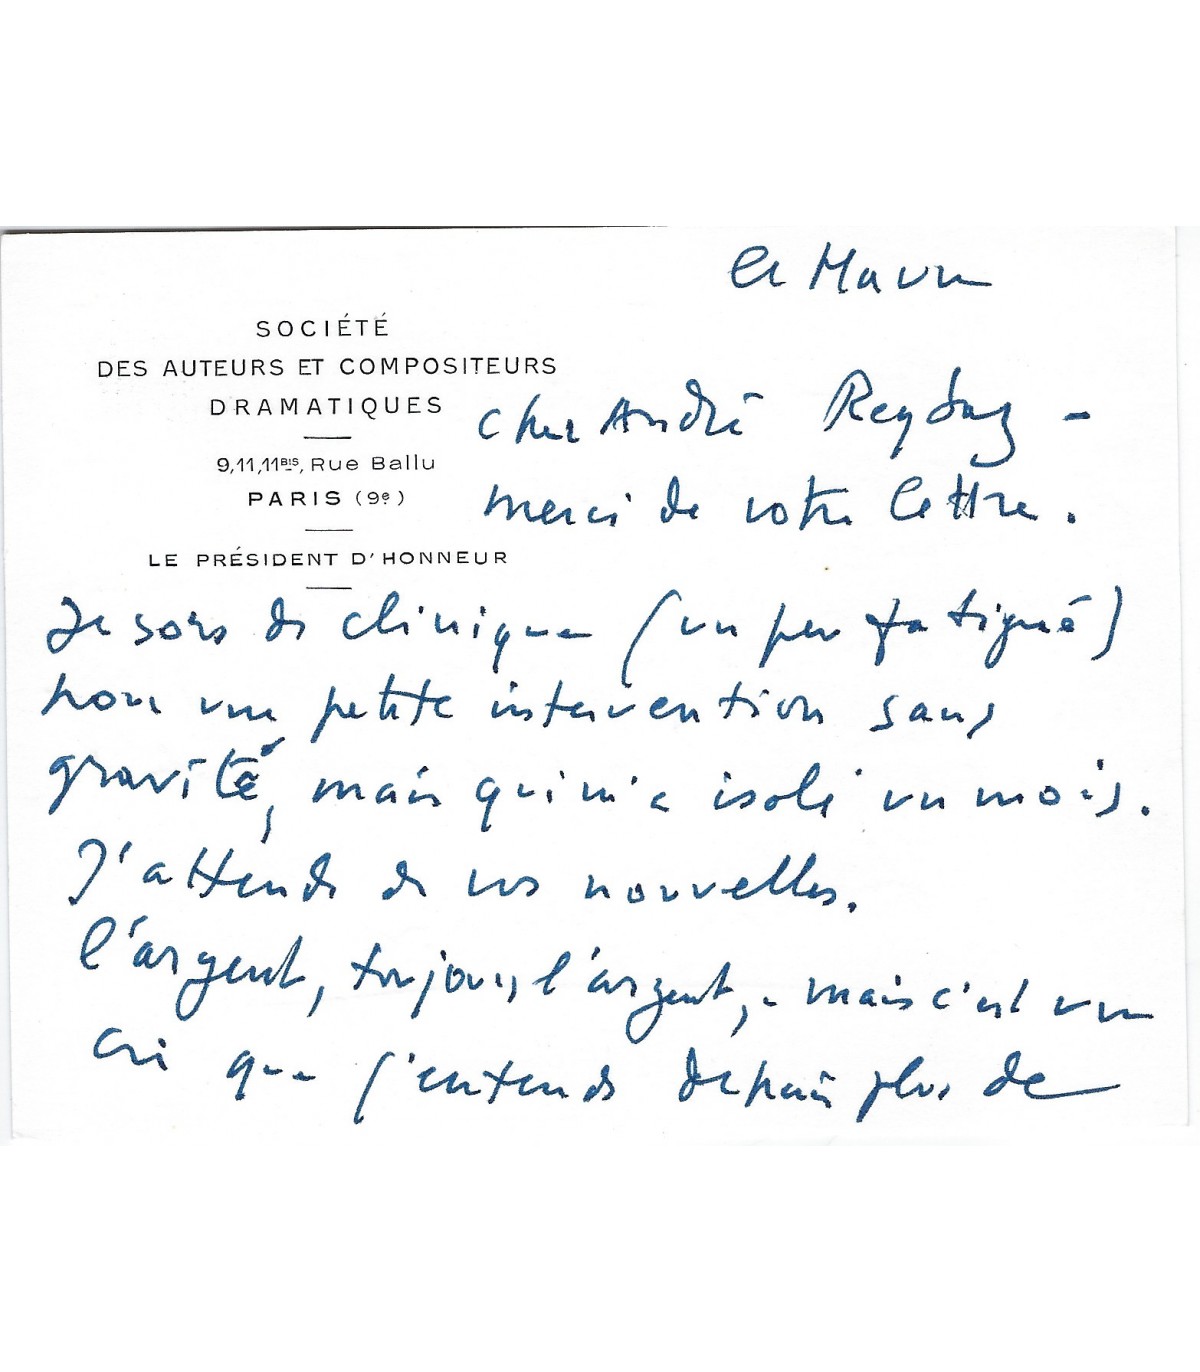 le 4 Mars
SOCIÉTÉ
DES AUTEURS ET COMPOSITEURS
DRAMATIQUES
9,11,11BIS, Rue Ballu
PARIS (9e)
LE PRÉSIDENT D'HONNEUR
Cher André Reybaz –
merci de votre lettre.
Je sors de clinique (un peu fatigué)
pour une petite intervention sans
gravité, mais qui m'a isolé un mois.
J'attends de vos nouvelles.
l'argent, toujours l'argent, - mais c'est un
cri que j'entends depuis plus de